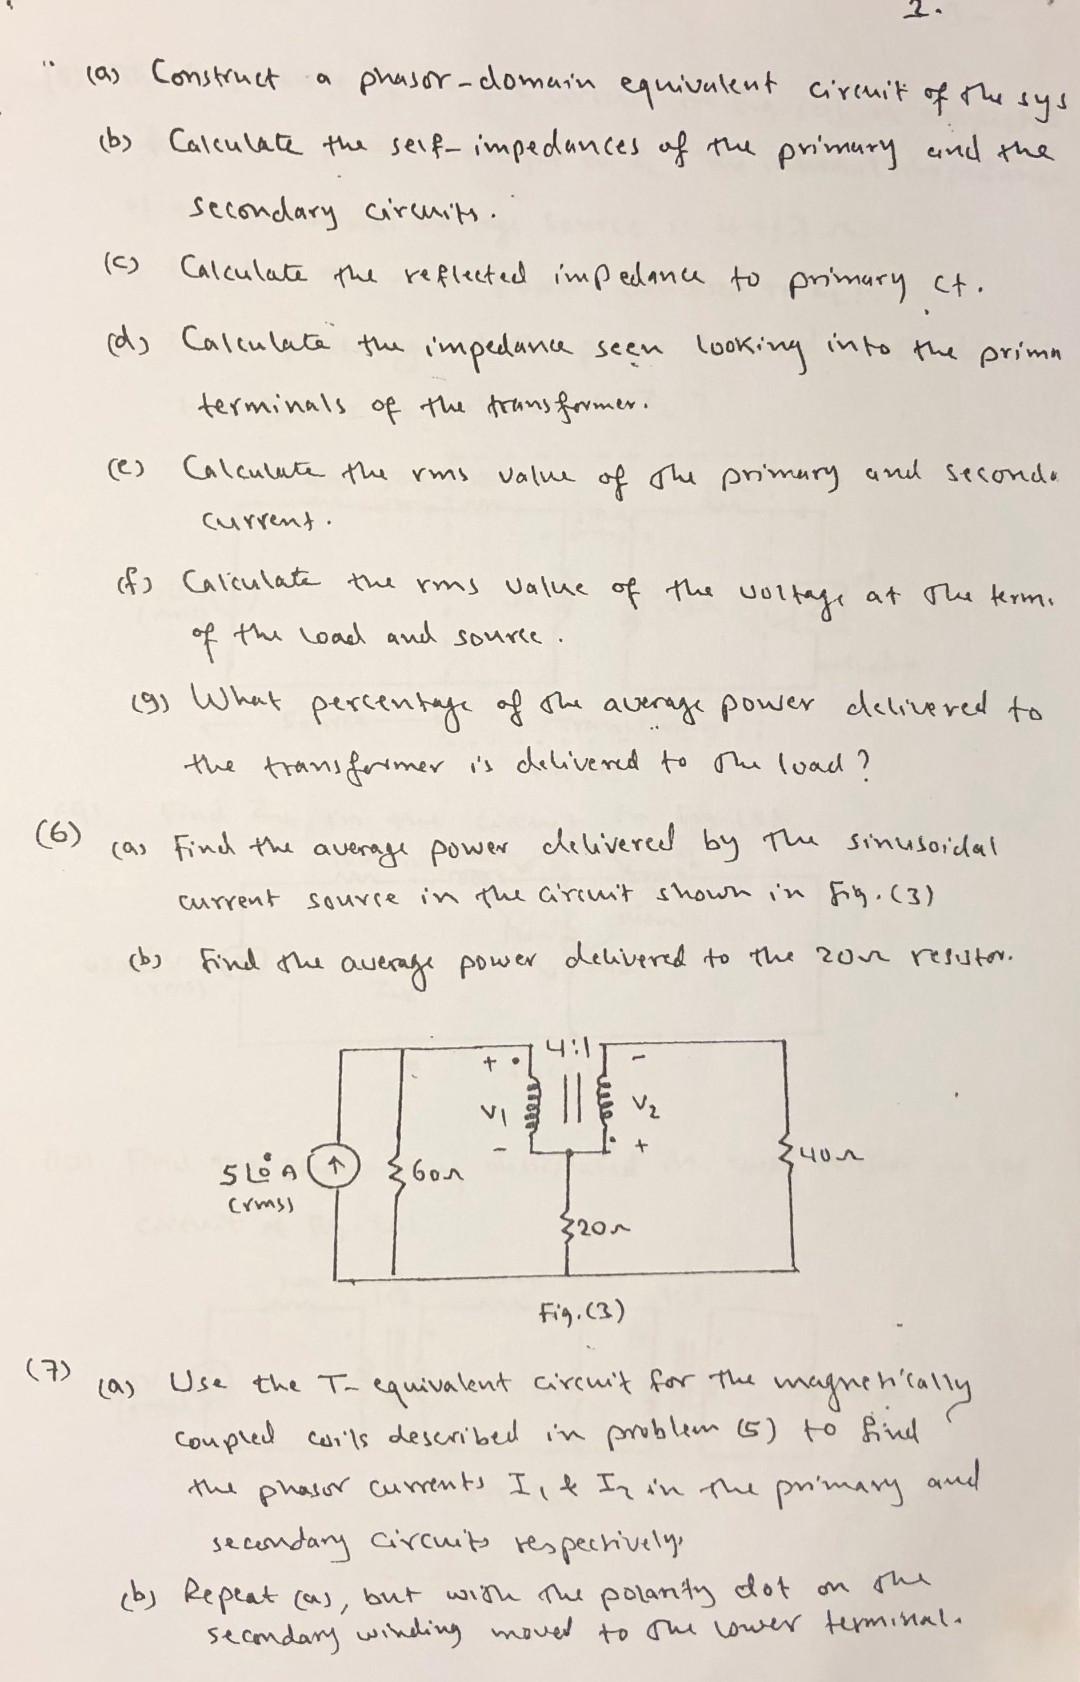 2.
(a) Construct a phasor-domain equivalent circuit of the sys
(b) Calculate the self-impedances of the primary and the
secondary circuits.
(c) Calculate the reflected impedance to primary ct.
(d) Calculate the impedance seen looking into the prima
terminals of the transformer.
(e) Calculate the rms value of the primary and seconda
current.
(f) Calculate the rms value of the voltage at the termi
of the load and source.
(g) What percentage of the average power delivered to
the transformer is delivered to the load?
(6) (a) Find the average power delivered by the sinusoidal
current source in the circuit shown in Fig.(3)
(b) Find the average power delivered to the 20Ω resistor.
4:1
+ • -
V1 V2
- • +
5∠0° A
(rms)
60Ω
40Ω
20Ω
Fig.(3)
(7) (a) Use the T-equivalent circuit for the magnetically
coupled coils described in problem (5) to find
the phasor currents I1 & I2 in the primary and
secondary circuits respectively.
(b) Repeat (a), but with the polarity dot on the
secondary winding moved to the lower terminal.